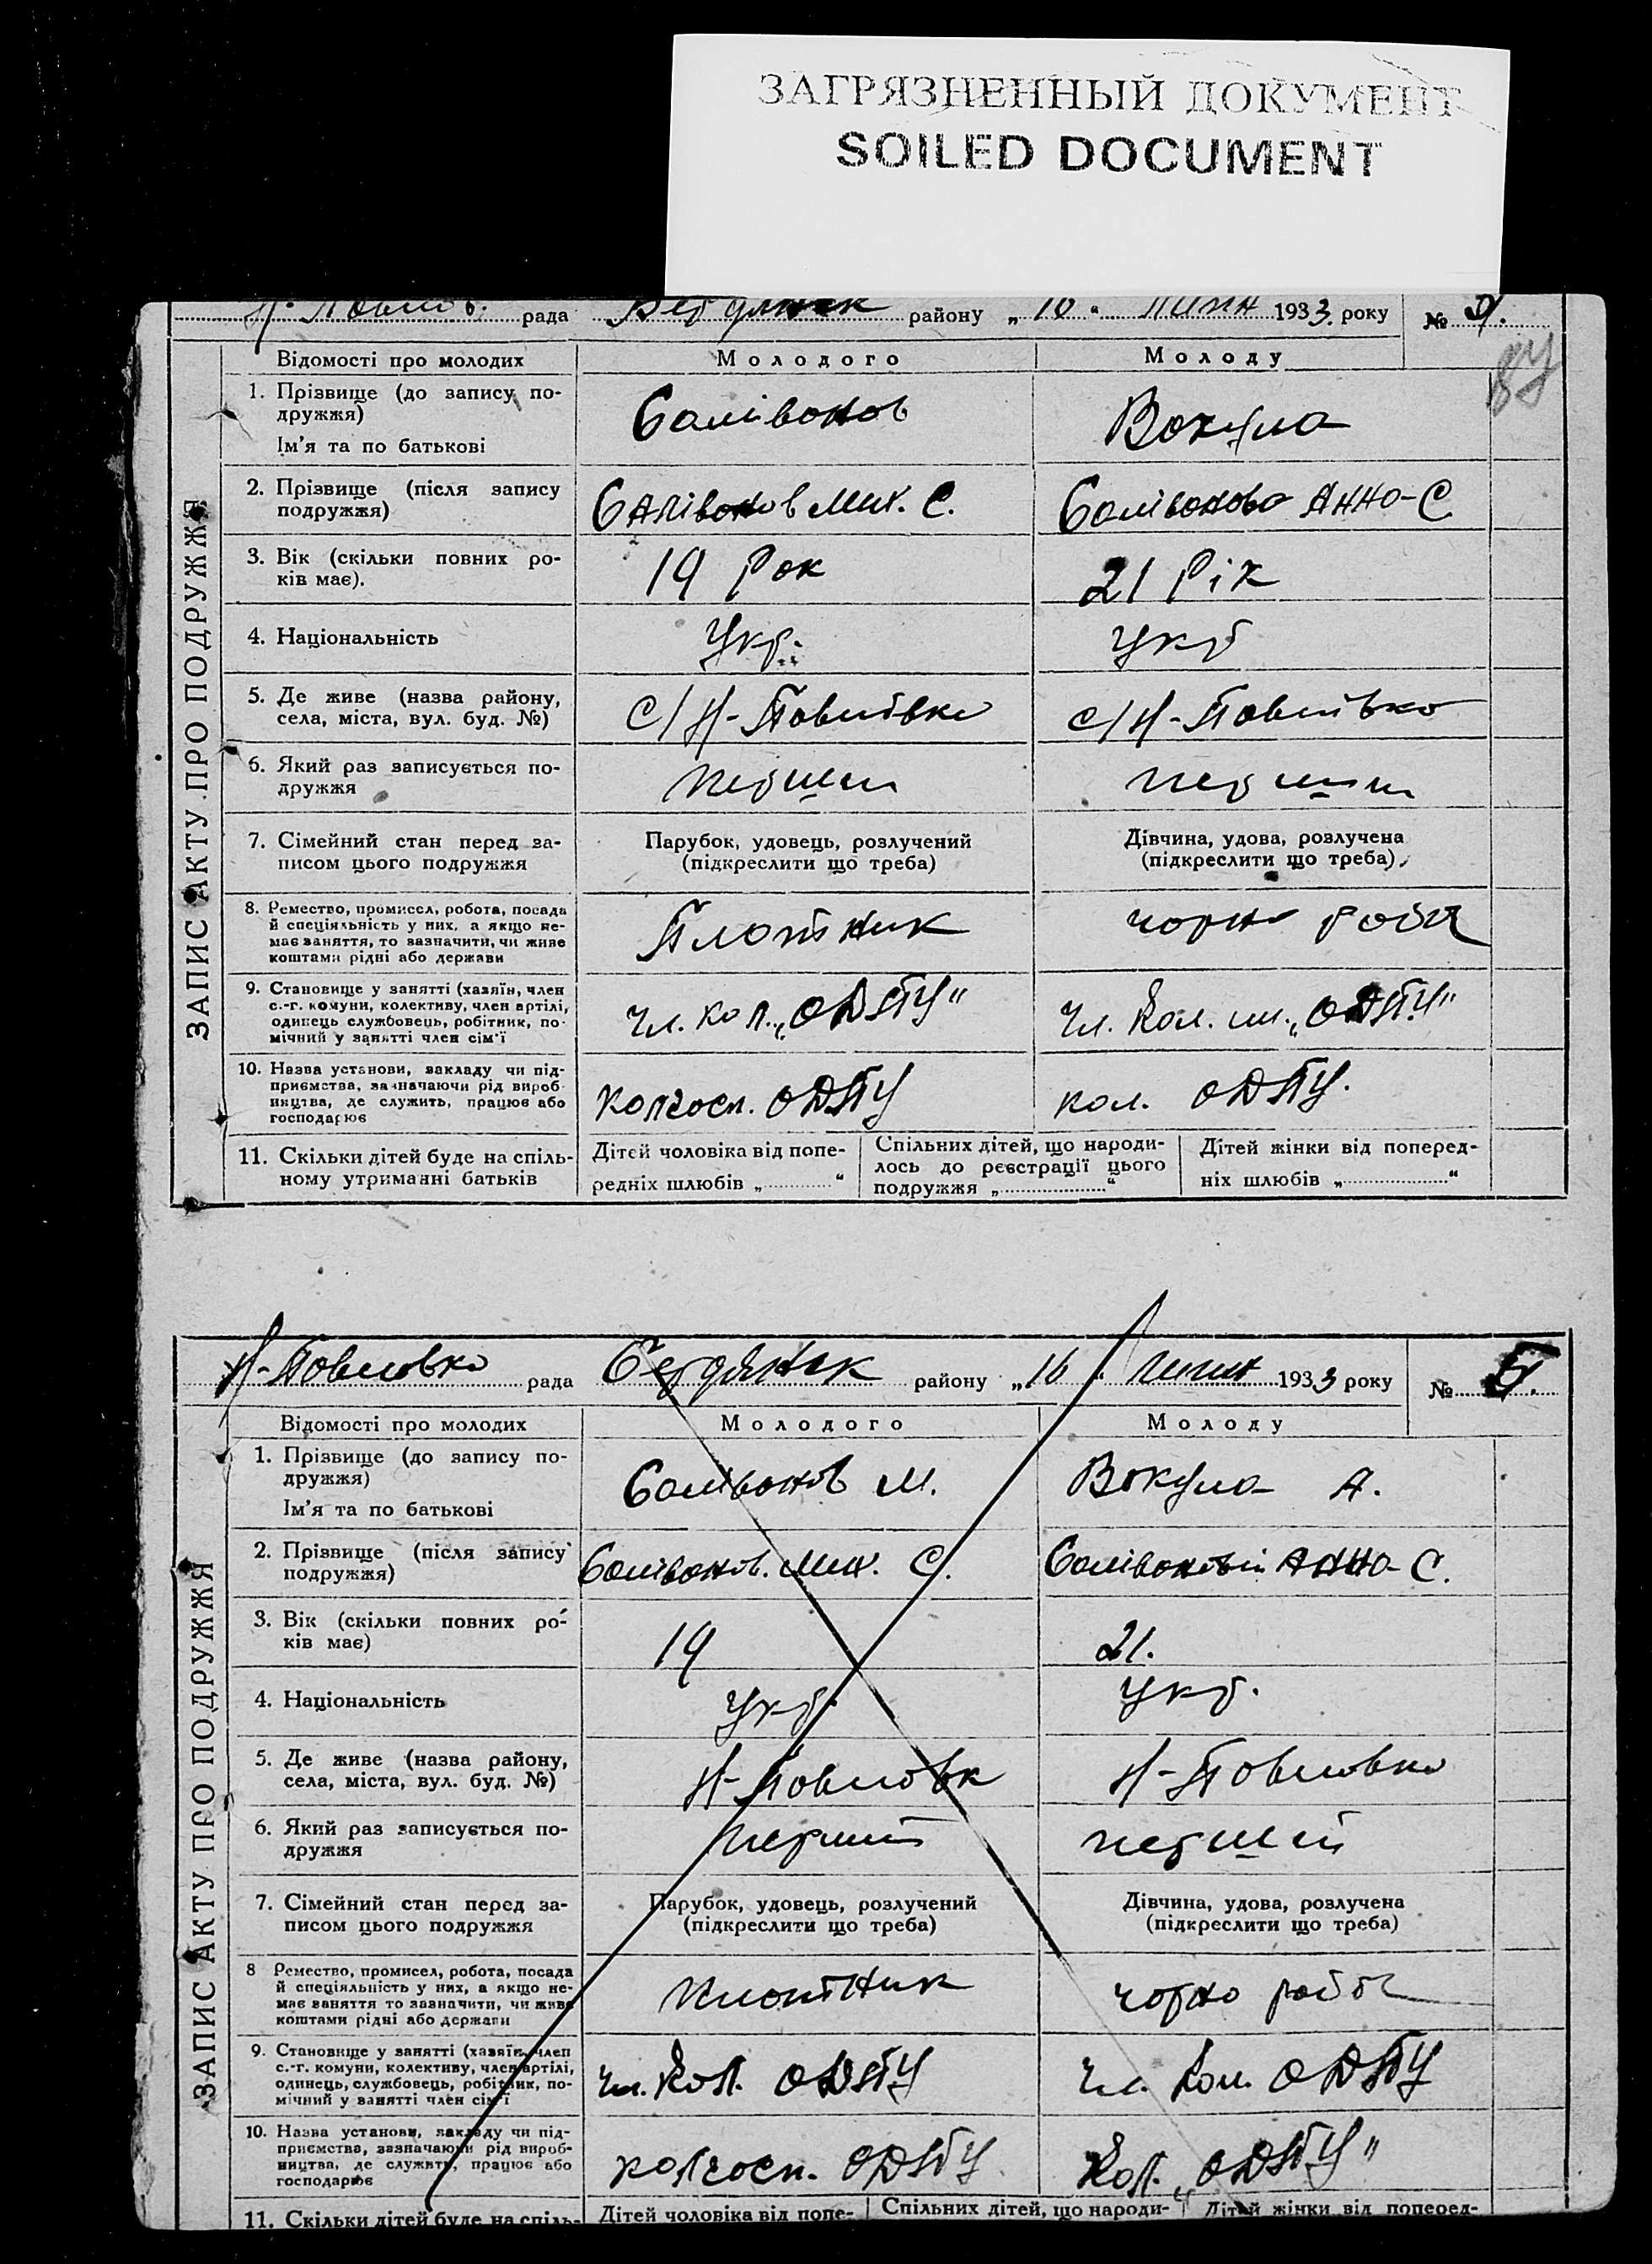 ЗАГРЯЗНЕННЫЙ ДОКУМЕНТ
SOILED DOCUMENT
рада Бердянск району „10“ липн 1933 року №
Відомості про молодих Молодого Молоду
ЗАПИС АКТУ ПРО ПОДРУЖЖЯ
1. Прізвище (до запису по-
дружжя)
Ім'я та по батькові
Салівонов Вокула
2. Прізвище (після запису
подружжя)
Салівонов Мих. С. Салівонова Анна С.
3. Вік (скільки повних ро-
ків має).
19 Рок 21 Рік
4. Національність
Укр. Укр
5. Де живе (назва району,
села, міста, вул. буд. №)
с/Н-Павлівка с/Н-Павлівка
6. Який раз записується по-
дружжя
7. Сімейний стан перед за-
писом цього подружжя
Парубок, удовець, розлучений
(підкреслити що треба)
Дівчина, удова, розлучена
(підкреслити що треба)
8. Ремество, промисел, робота, посада
й спеціяльність у них, а якщо не-
має заняття, то зазначити, чи живе
коштами рідні або держави
Плотник чорно роб
9. Становище у занятті (хазяїн, член
с.-г. комуни, колективу, член артілі,
одинець службовець, робітник, по-
мічний у занятті член сім'ї
Чл. кол. „ОДПУ“ Чл. Кол. „ОДПУ“
10. Назва установи, закладу чи під-
приємства, зазначаючи рід вироб-
ництва, де служить, працює або
господарює
Колгосп. ОДПУ кол. ОДПУ.
11. Скільки дітей буде на спіль-
ному утриманні батьків
Дітей чоловіка від попе-
редніх шлюбів „ “
Спільних дітей, що народи-
лось до реєстрації цього
подружжя „ “
Дітей жінки від поперед-
ніх шлюбів „ “
Н-Павловка рада Бердянск району „16“ липня 1933 року №
Відомості про молодих Молодого Молоду
ЗАПИС АКТУ ПРО ПОДРУЖЖЯ
1. Прізвище (до запису по-
дружжя)
Ім'я та по батькові
Салівонов М. Вокула А.
2. Прізвище (після запису
подружжя)
Салівонов. Мих. С. Анна С.
3. Вік (скільки повних ро-
ків має)
19 21.
4. Національність
Укр. Укр.
5. Де живе (назва району,
села, міста, вул. буд. №)
Н-Павловк Н-Павловка
6. Який раз записується по-
дружжя
перший перший
7. Сімейний стан перед за-
писом цього подружжя
Парубок, удовець, розлучений
(підкреслити що треба)
Дівчина, удова, розлучена
(підкреслити що треба)
8 Ремество, промисел, робота, посада
й спеціяльність у них, а якщо не-
має заняття то зазначити, чи живе
коштами рідні або держави
Плотник чорно робоч
9. Становище у занятті (хазяїн, член
с.-г. комуни, колективу, член артілі,
одинець, службовець, робітник, по-
мічний у занятті член сім'ї
чл. Кол. ОДПУ Чл. Кол. ОДПУ
10. Назва установи, закладу чи під-
приємства, зазначаючи рід вироб-
ництва, де служить, працює або
господарює
колгосп. ОДПУ Кол. „ОДПУ“
11. Скільки дітей буде на спіль-
Дітей чоловіка від попе-
Спільних дітей, що народи-
Дітей жінки від поперед-